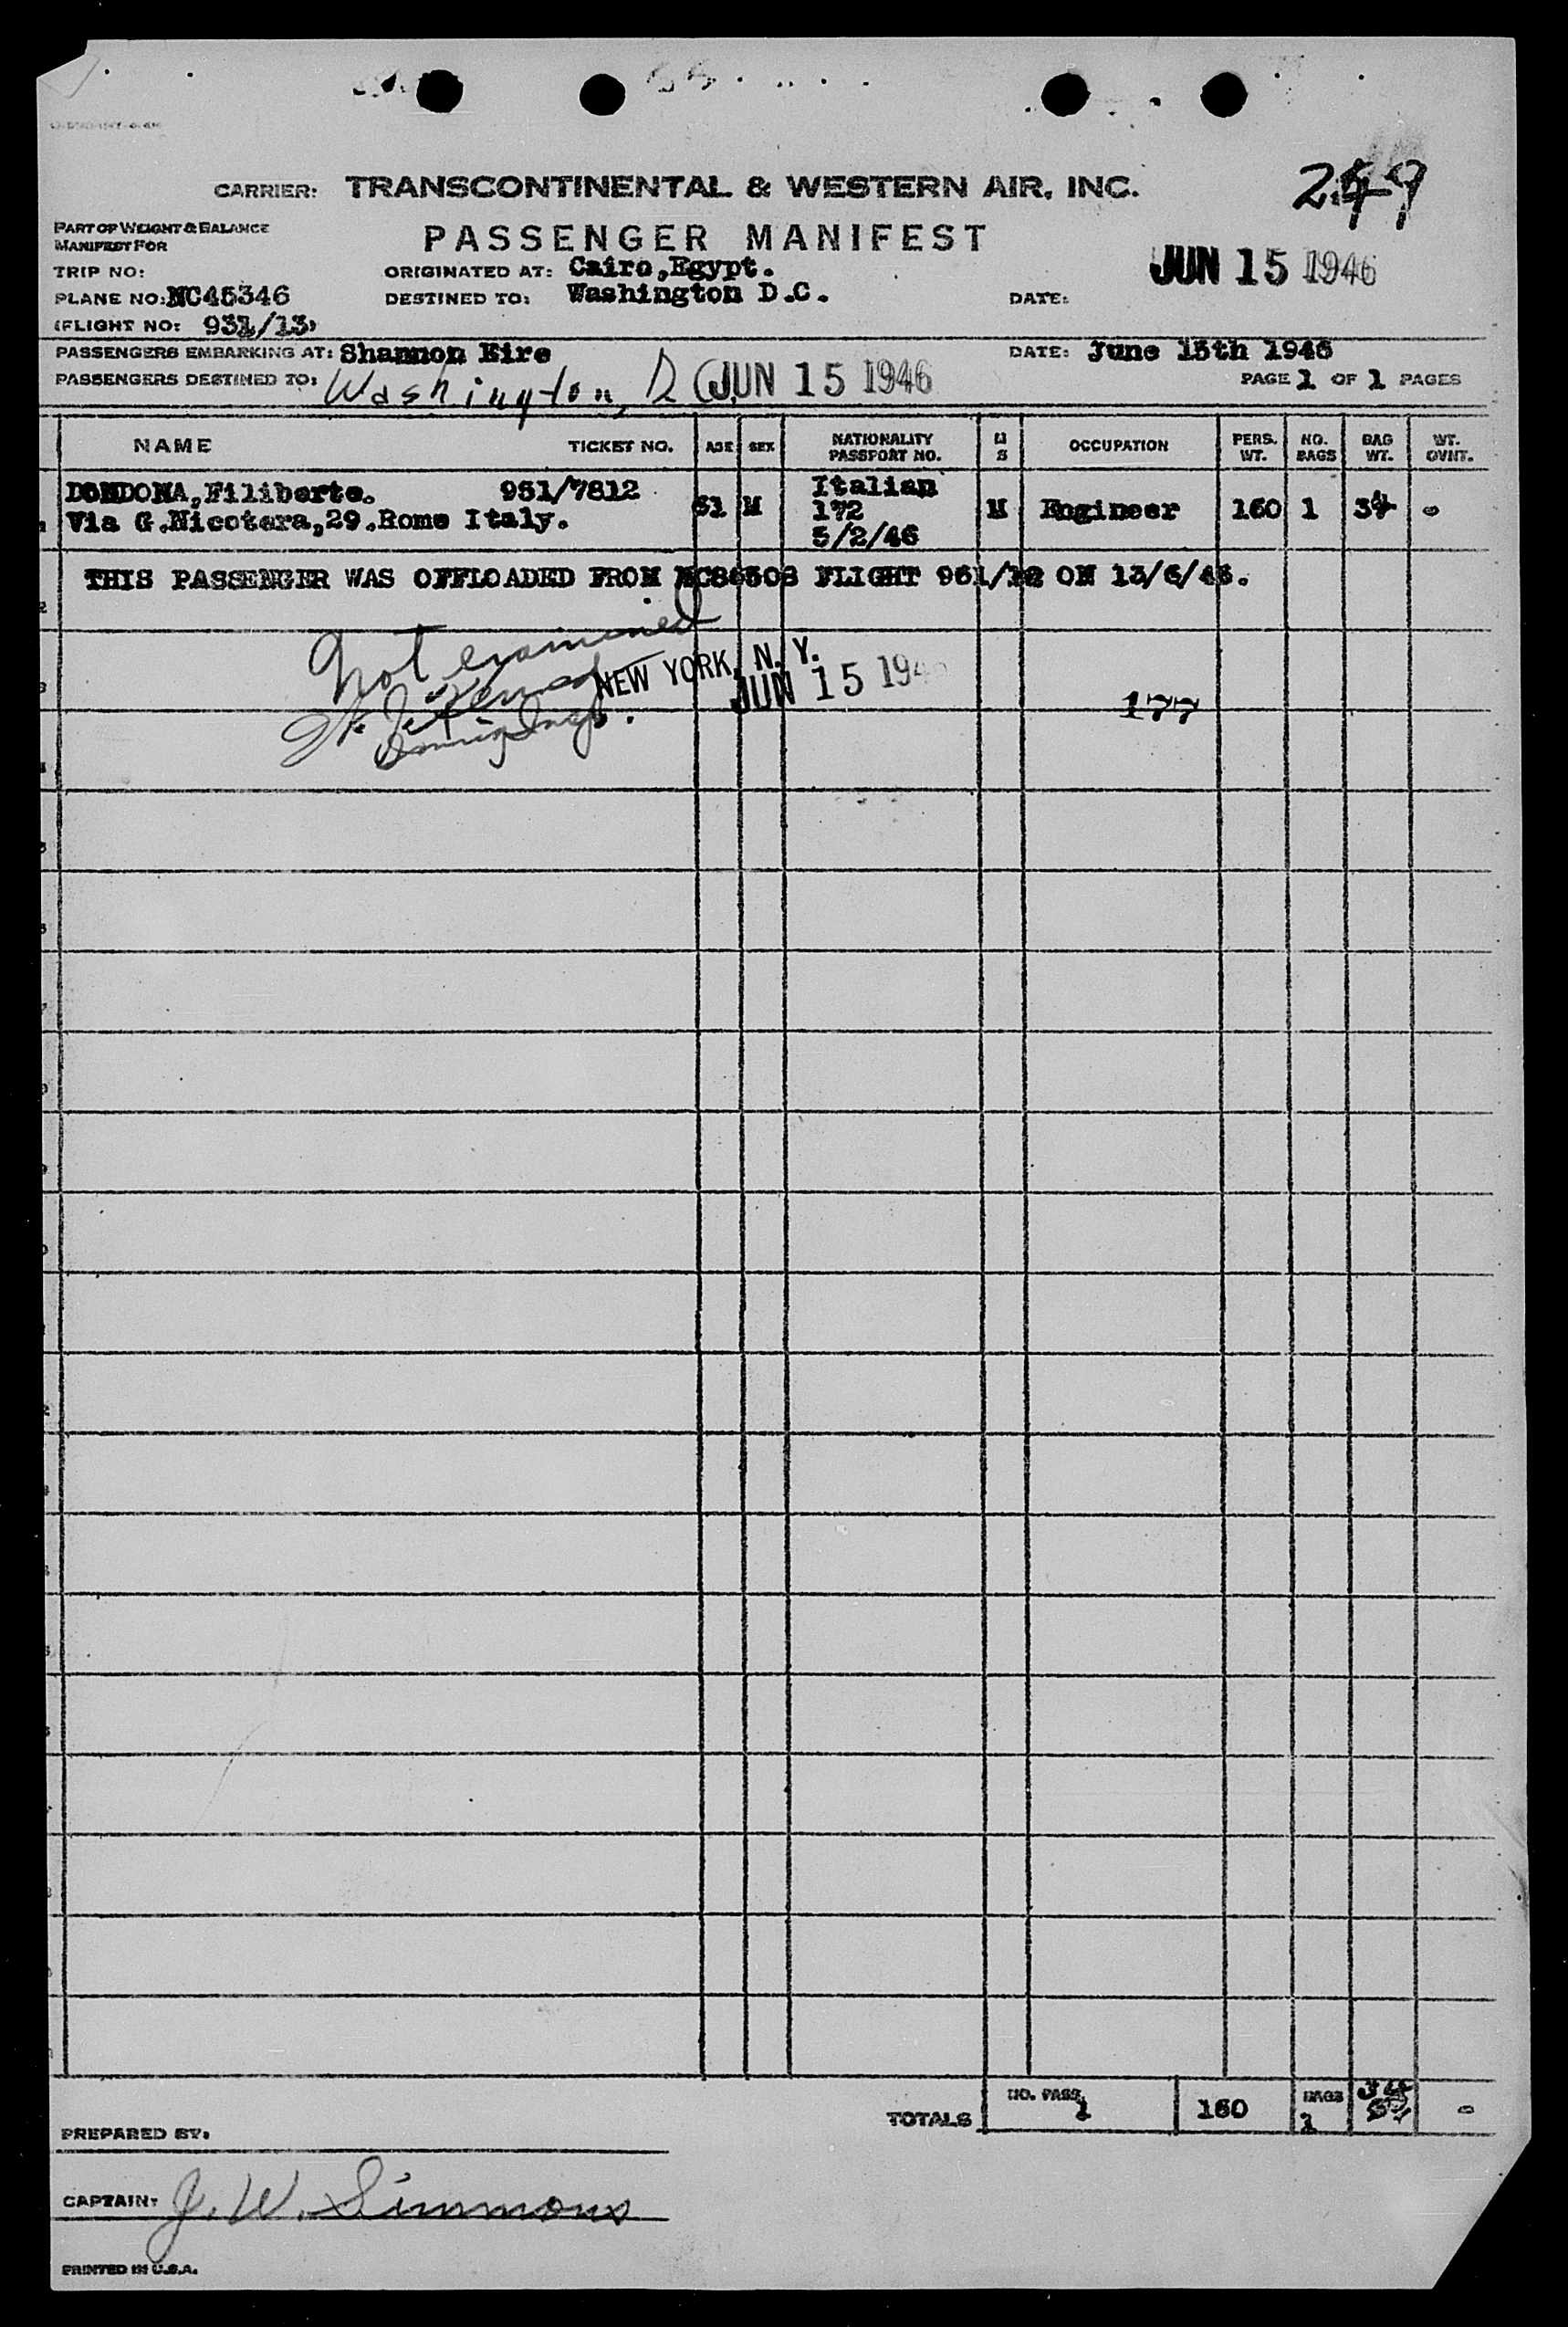 249
CARRIER: TRANSCONTINENTAL & WESTERN AIR, INC.
PART OF WEIGHT & BALANCE
MANIFEST FOR
PASSENGER MANIFEST
TRIP NO:
ORIGINATED AT: Cairo,Egypt.
JUN 15 1946
PLANE NO: NC45346
DESTINED TO: Washington D.C.
DATE:
(FLIGHT NO: 931/13)
PASSENGERS EMBARKING AT: Shannon Eire
DATE: June 15th 1946
PASSENGERS DESTINED TO: Washington, D C JUN 15 1946
PAGE 1 OF 1 PAGES
NAME TICKET NO. AGE SEX NATIONALITY PASSPORT NO. M S OCCUPATION PERS. WT. NO. BAGS BAG WT. WT. OVNT.
DONDONA,Filiberto. 951/7812 61 M Italian
1 Via G.Nicotera,29.Rome Italy. 172 M Engineer 160 1 34 -
5/2/46
THIS PASSENGER WAS OFFLOADED FROM FLIGHT 961/12 ON 13/6/46.
Not examined
NEW YORK, N. Y.
JUN 15 194
177
TOTALS NO. PASS. 1 160 BAGS 1 34 -
PREPARED BY:
CAPTAIN: J. W. Simmons
PRINTED IN U.S.A.